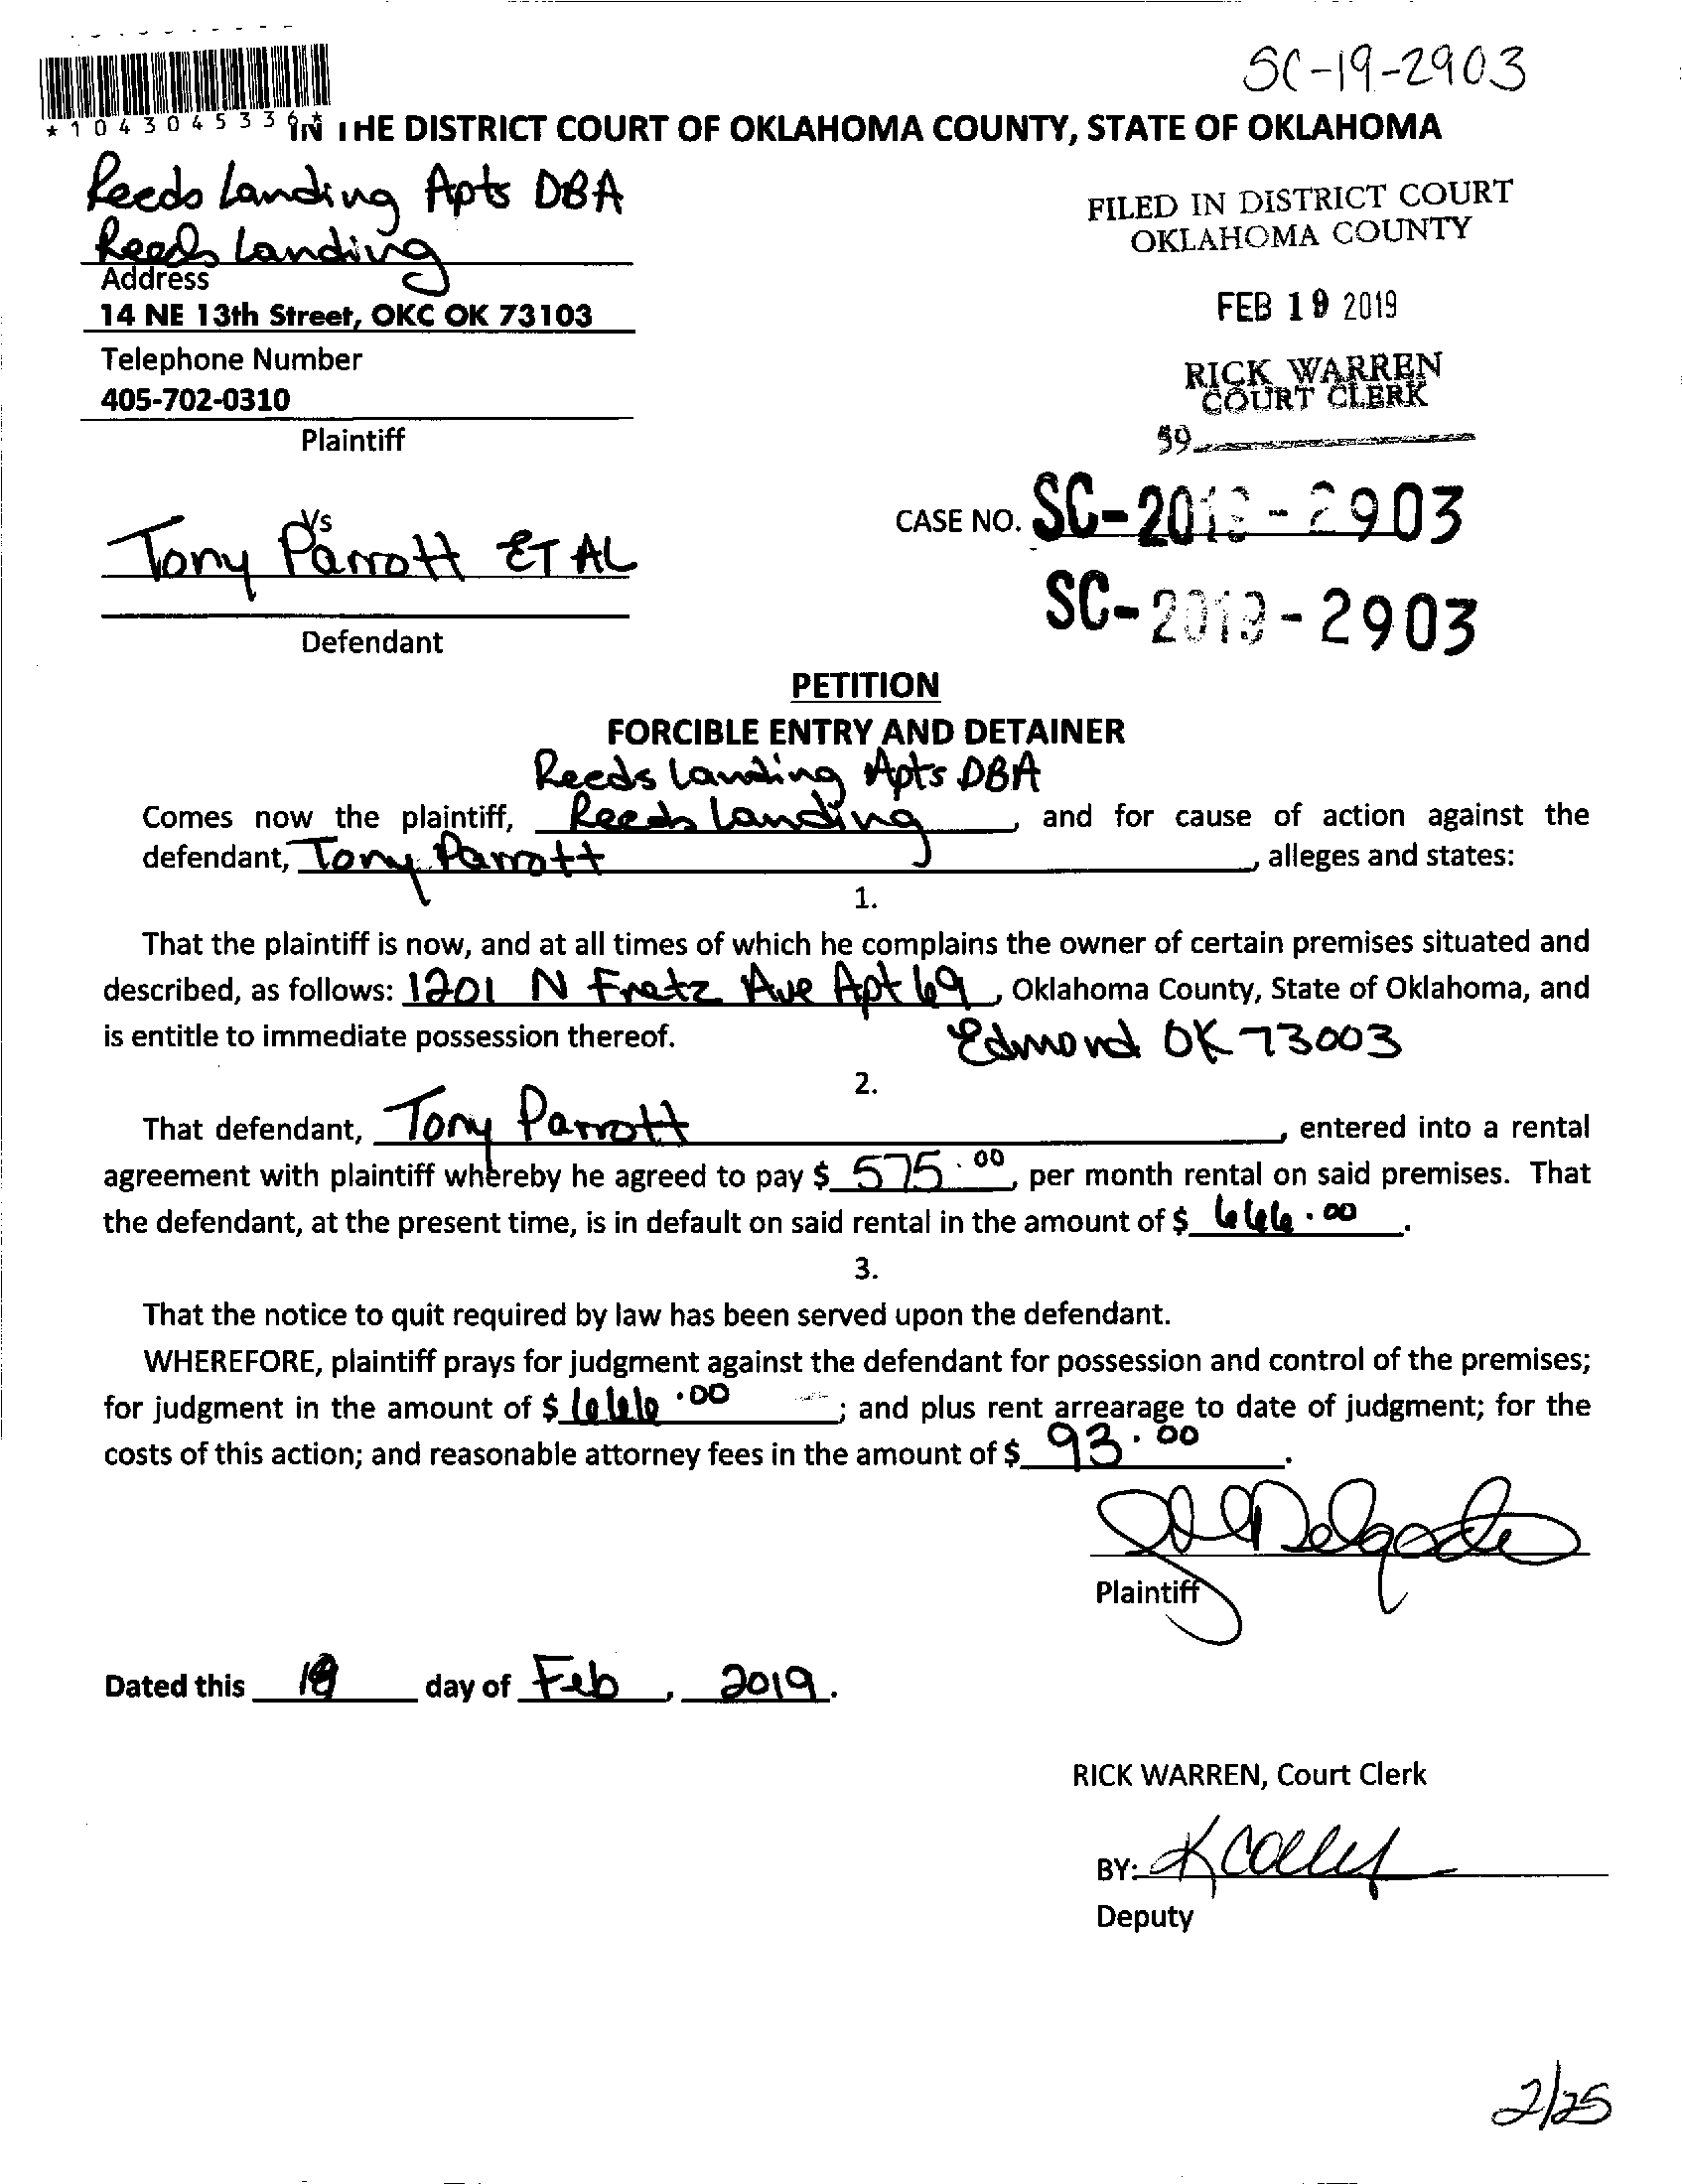 SC-19-2903
IN THE DISTRICT COURT OF OKLAHOMA COUNTY, STATE OF OKLAHOMA
Reeds Landing Apts DBA
Reeds Landing
Address
14 NE 13th Street, OKC OK 73103
Telephone Number
405-702-0310
Plaintiff
FILED IN DISTRICT COURT
OKLAHOMA COUNTY
FEB 19 2019
RICK WARREN
COURT CLERK
39
Vs
Tony Parrott ET AL
Defendant
CASE NO. SC-2019-2903
SC-2019-2903
PETITION
FORCIBLE ENTRY AND DETAINER
Reeds Landing Apts DBA
Comes now the plaintiff, Reeds Landing, and for cause of action against the
defendant, Tony Parrott, alleges and states:
1.
That the plaintiff is now, and at all times of which he complains the owner of certain premises situated and
described, as follows: 1201 N Fretz Ave Apt 69, Oklahoma County, State of Oklahoma, and
is entitle to immediate possession thereof. Edmond OK 73003
2.
That defendant, Tony Parrott, entered into a rental
agreement with plaintiff whereby he agreed to pay $ 575.00, per month rental on said premises. That
the defendant, at the present time, is in default on said rental in the amount of $ 666.00.
3.
That the notice to quit required by law has been served upon the defendant.
WHEREFORE, plaintiff prays for judgment against the defendant for possession and control of the premises;
for judgment in the amount of $ 666.00; and plus rent arrearage to date of judgment; for the
costs of this action; and reasonable attorney fees in the amount of $ 93.00.
Delgado
Plaintiff
Dated this 19 day of Feb, 2019.
RICK WARREN, Court Clerk
BY:
Deputy
2/25